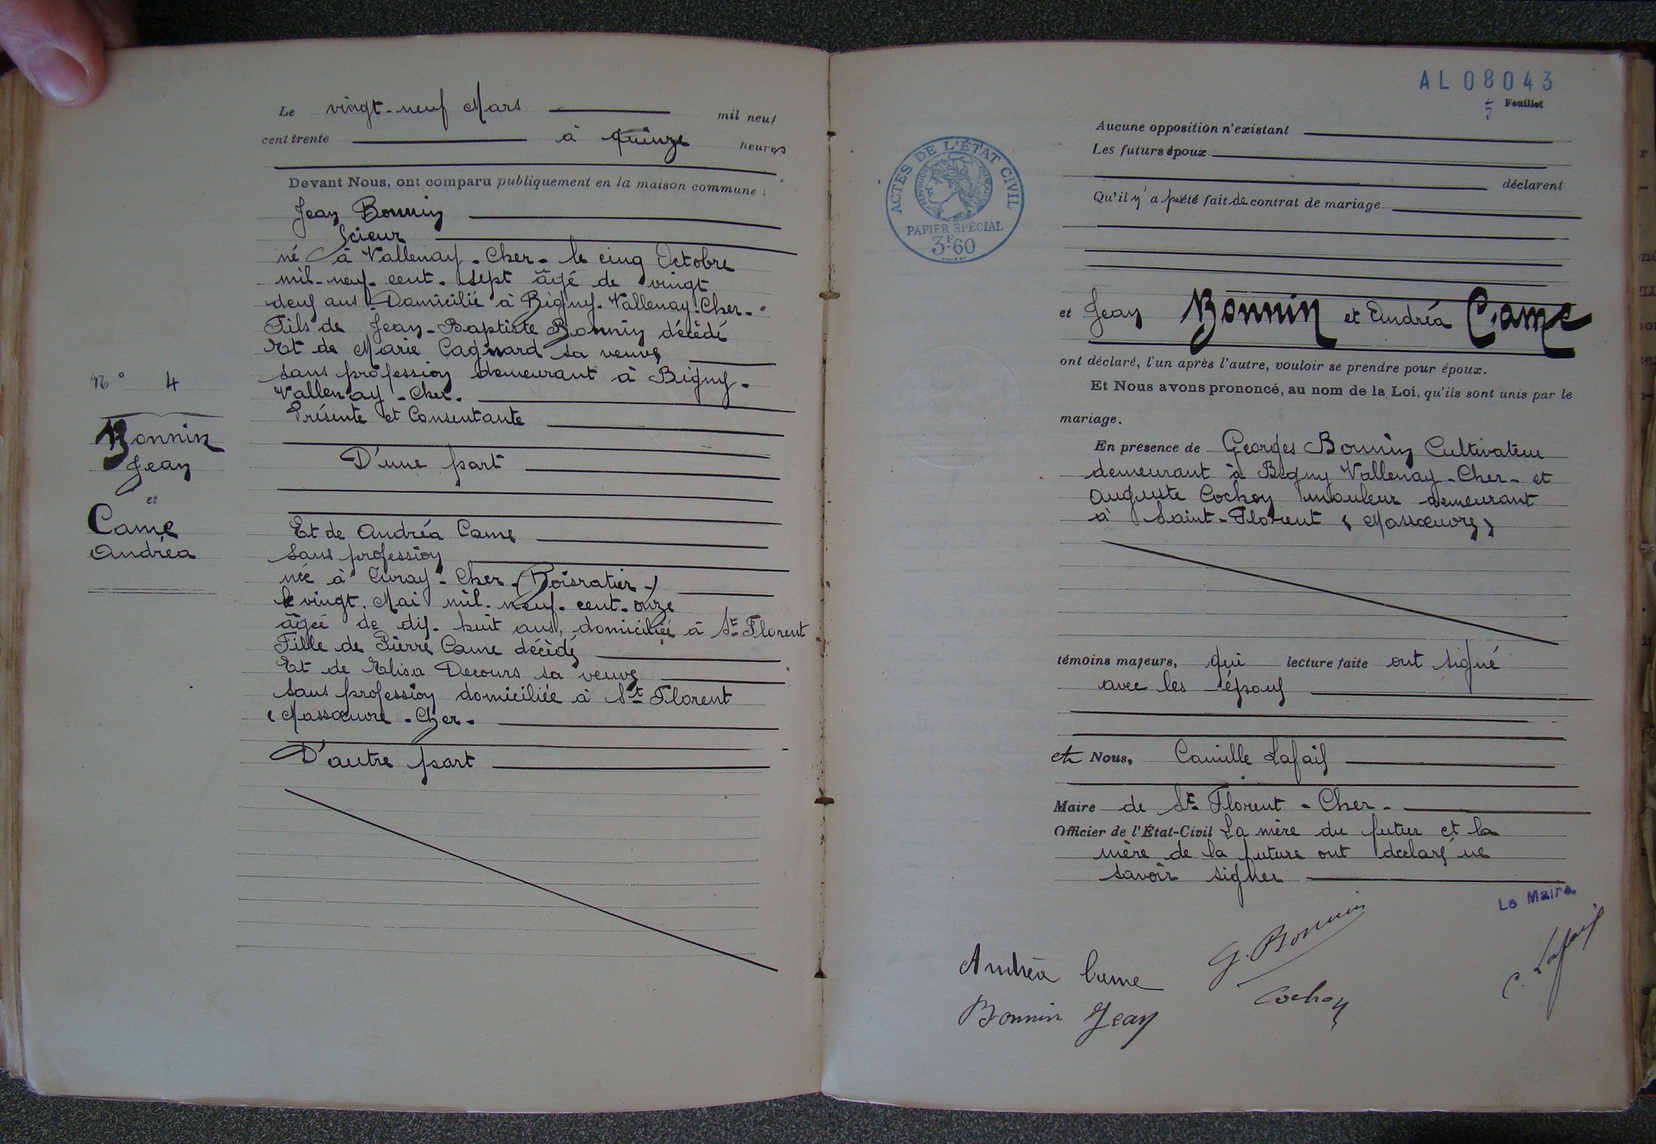 Le vingt-neuf Mars mil neuf
cent trente à quinze heures
Devant Nous, ont comparu publiquement en la maison commune :
Jean Bonnin
Scieur
né à Vallenay - Cher - le cinq Octobre
mil-neuf-cent-sept âgé de vingt
deux ans Domicilié à Bigny-Vallenay-Cher-
Fils de Jean-Baptiste Bonnin décédé
Et de Marie Cagnard sa veuve
sans profession demeurant à Bigny-
Vallenay-Cher-
Présente et Consentante
D'une part
N° 4
Bonnin
Jean
et
Came
Andréa
Et de Andréa Came
Sans profession
née à Civray-Cher-(Boisratier-)
le vingt Mai mil-neuf-cent-onze
âgée de dix-huit ans, domiciliée à St Florent
Fille de Pierre Came décédé
Et de Elisa Decours sa veuve
sans profession domiciliée à St Florent
(Massœuvre-Cher-
D'autre part
AL 08043
5 Feuillet
ACTES DE L'ÉTAT CIVIL
PAPIER SPÉCIAL
3F60
Aucune opposition n'existant
Les futurs époux
déclarent
Qu'il n'y a pas été fait de contrat de mariage
et Jean Bonnin et Andréa Came
ont déclaré, l'un après l'autre, vouloir se prendre pour époux.
Et Nous avons prononcé, au nom de la Loi, qu'ils sont unis par le
mariage.
En présence de Georges Bonnin Cultivateur
demeurant à Bigny Vallenay-Cher-et
Auguste Cochoy mouleur demeurant
à Saint-Florent (Massœuvre)
témoins majeurs, qui lecture faite ont signé
avec les époux
et Nous, Camille Lafaix
Maire de St Florent-Cher-
Officier de l'État-Civil La mère du futur et la
mère de la future ont déclaré ne
savoir signer
Le Maire
Andréa Came
G. Bonnin
C. Lafaix
Bonnin Jean
Cochoy